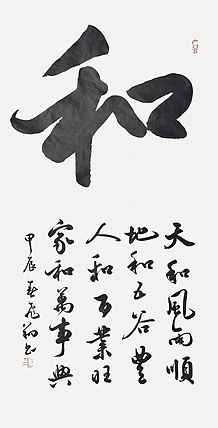 和
天和風雨順
地和五谷豐
人和百業旺
家和萬事興
甲辰